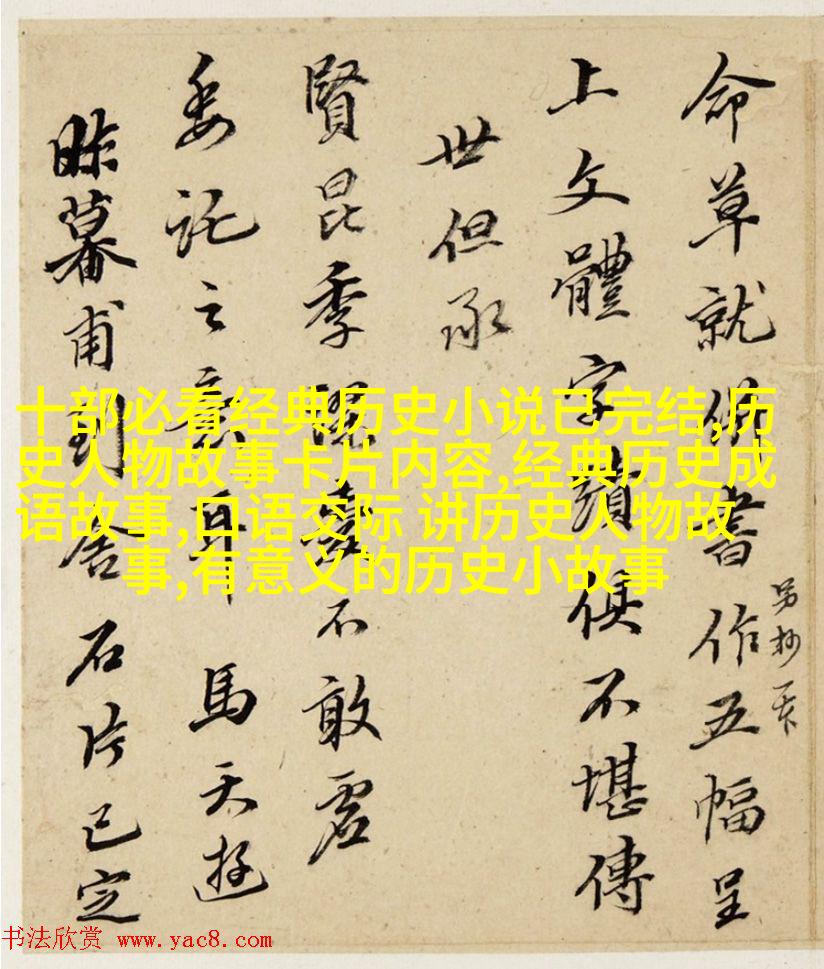 命草就併書作五幅呈
另抄一
上文體字蹟俱不堪傳
世但承
賢昆季不敢虛
委託之意耳 馬天遊
昨暮甫到舍石片已定
十部必看经典历史小说已完结,历
史人物故事卡片内容,经典历史成
语故事,口语交际 讲历史人物故
事,有意义的历史小故事
书法欣赏 www.yac8.com